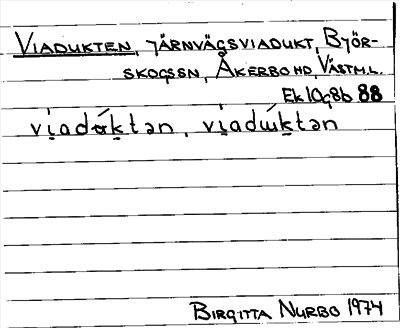 VIADUKTEN, JÄRNVÄGSVIADUKT, BJÖR-
SKOGSSN, ÅKERBO HD, VÄSTM.L.
Ek 10g8b 88
vi̭adɷ́k̭tən, vi̭adɯ́k̭tən
BIRGITTA NURBO 1974